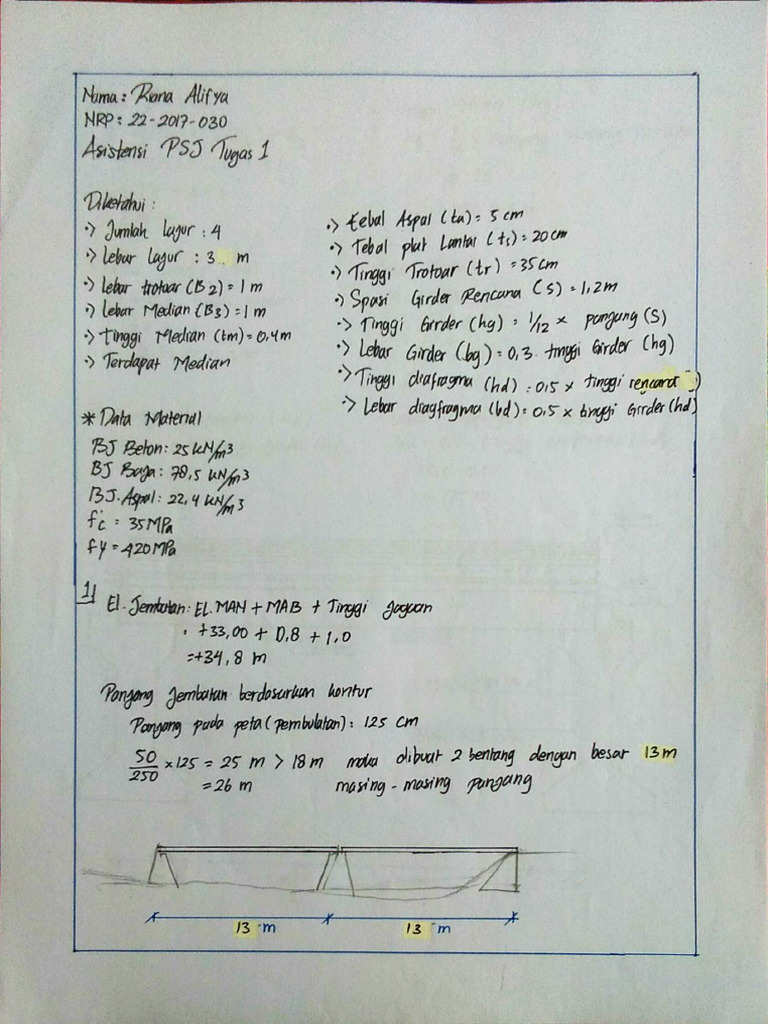 Nama : Riana Alifya
NRP : 22-2017-030
Asistensi PSJ Tugas 1
Diketahui :
•> Jumlah lajur : 4
•> Lebar lajur : 3 m
•> Lebar trotoar (B2) = 1 m
•> Lebar Median (B3) = 1 m
•> Tinggi Median (tm) = 0,4 m
•> Terdapat Median
•> Tebal Aspal (ta) = 5 cm
•> Tebal plat Lantai (ts) = 20 cm
•> Tinggi Trotoar (tr) = 35 cm
•> Spasi Girder Rencana (S) = 1,2 m
•> Tinggi Girder (hg) = 1/12 × panjang (S)
•> Lebar Girder (bg) = 0,3 . tinggi Girder (hg)
•> Tinggi diafragma (hd) = 0,5 × tinggi rencana )
•> Lebar diagfragma (bd) = 0,5 × tinggi Girder (hd)
* Data Material
BJ Beton : 25 kN/m3
BJ Baja : 78,5 kN/m3
BJ. Aspal : 22,4 kN/m3
f'c = 35 MPa
fy = 420 MPa
1] El. Jembatan : EL. MAN + MAB + Tinggi Jagaan
= +33,00 + 0,8 + 1,0
= +34,8 m
Panjang Jembatan berdasarkan kontur
Panjang pada peta (pembulatan) : 125 cm
50/250 × 125 = 25 m > 18 m maka dibuat 2 bentang dengan besar 13 m
= 26 m masing - masing panjang
13 m 13 m